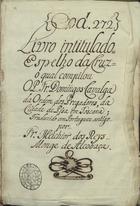 (Cod. 272)
Livro intitulado
Espelho da Cruz
o qual compilou
O P. Fr. Domingos Cavalga
da Ordem dos Pregadores, da
Cidade de Pisa em Toscana
Traduzido em Portuguez antigo
por
Fr. Melchior dos Reys
Monge de Alcobaça